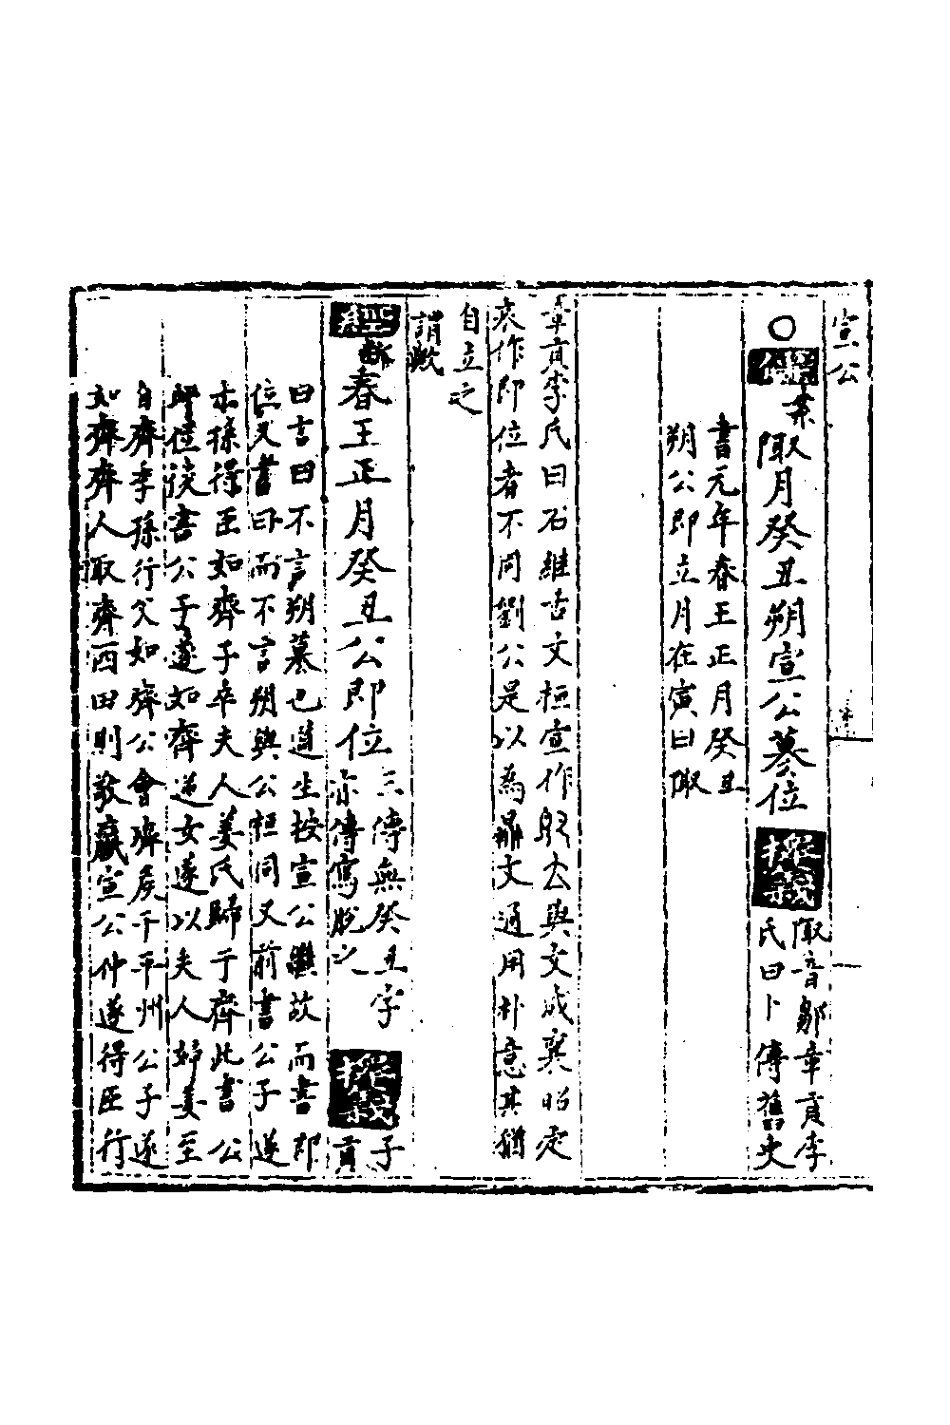 宣公
○
陬月癸丑朔宣公䇿位
陬音鄒章貢李
氏曰卜傳舊史
書元年春王正月癸丑
朔公即立月在寅曰陬
章貢李氏曰石經古文桓宣作 公與文成襄昭定
哀作即位者不同劉公是以為鼎文通用朴意其猶
自立之
謂歟
經
春王正月癸丑公即位
三傳無癸丑字
亦傳寫脫之
子
貢
曰古曰不言朔 也 生按宣公繼故而書即
位又書曰而不言朔與公桓同又前書公子遂
未孫得臣如齊子卒夫人姜氏歸于齊此書公
即位後書公子遂如齊逆女遂以夫人婦姜至
自齊季孫行父如齊公會齊侯于平州公子遂
如齊齊人取齊西田則敬嬴宣公仲遂得臣行